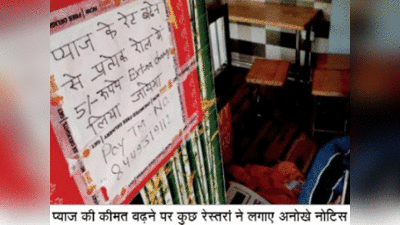 प्याज के रेट बढ़ने
से प्रत्येक रोल के
5/- रूपये Extra Charge
लिया जायेगा
Pay TM NO.
प्याज की कीमत बढ़ने पर कुछ रेस्तरां ने लगाए अनोखे नोटिस